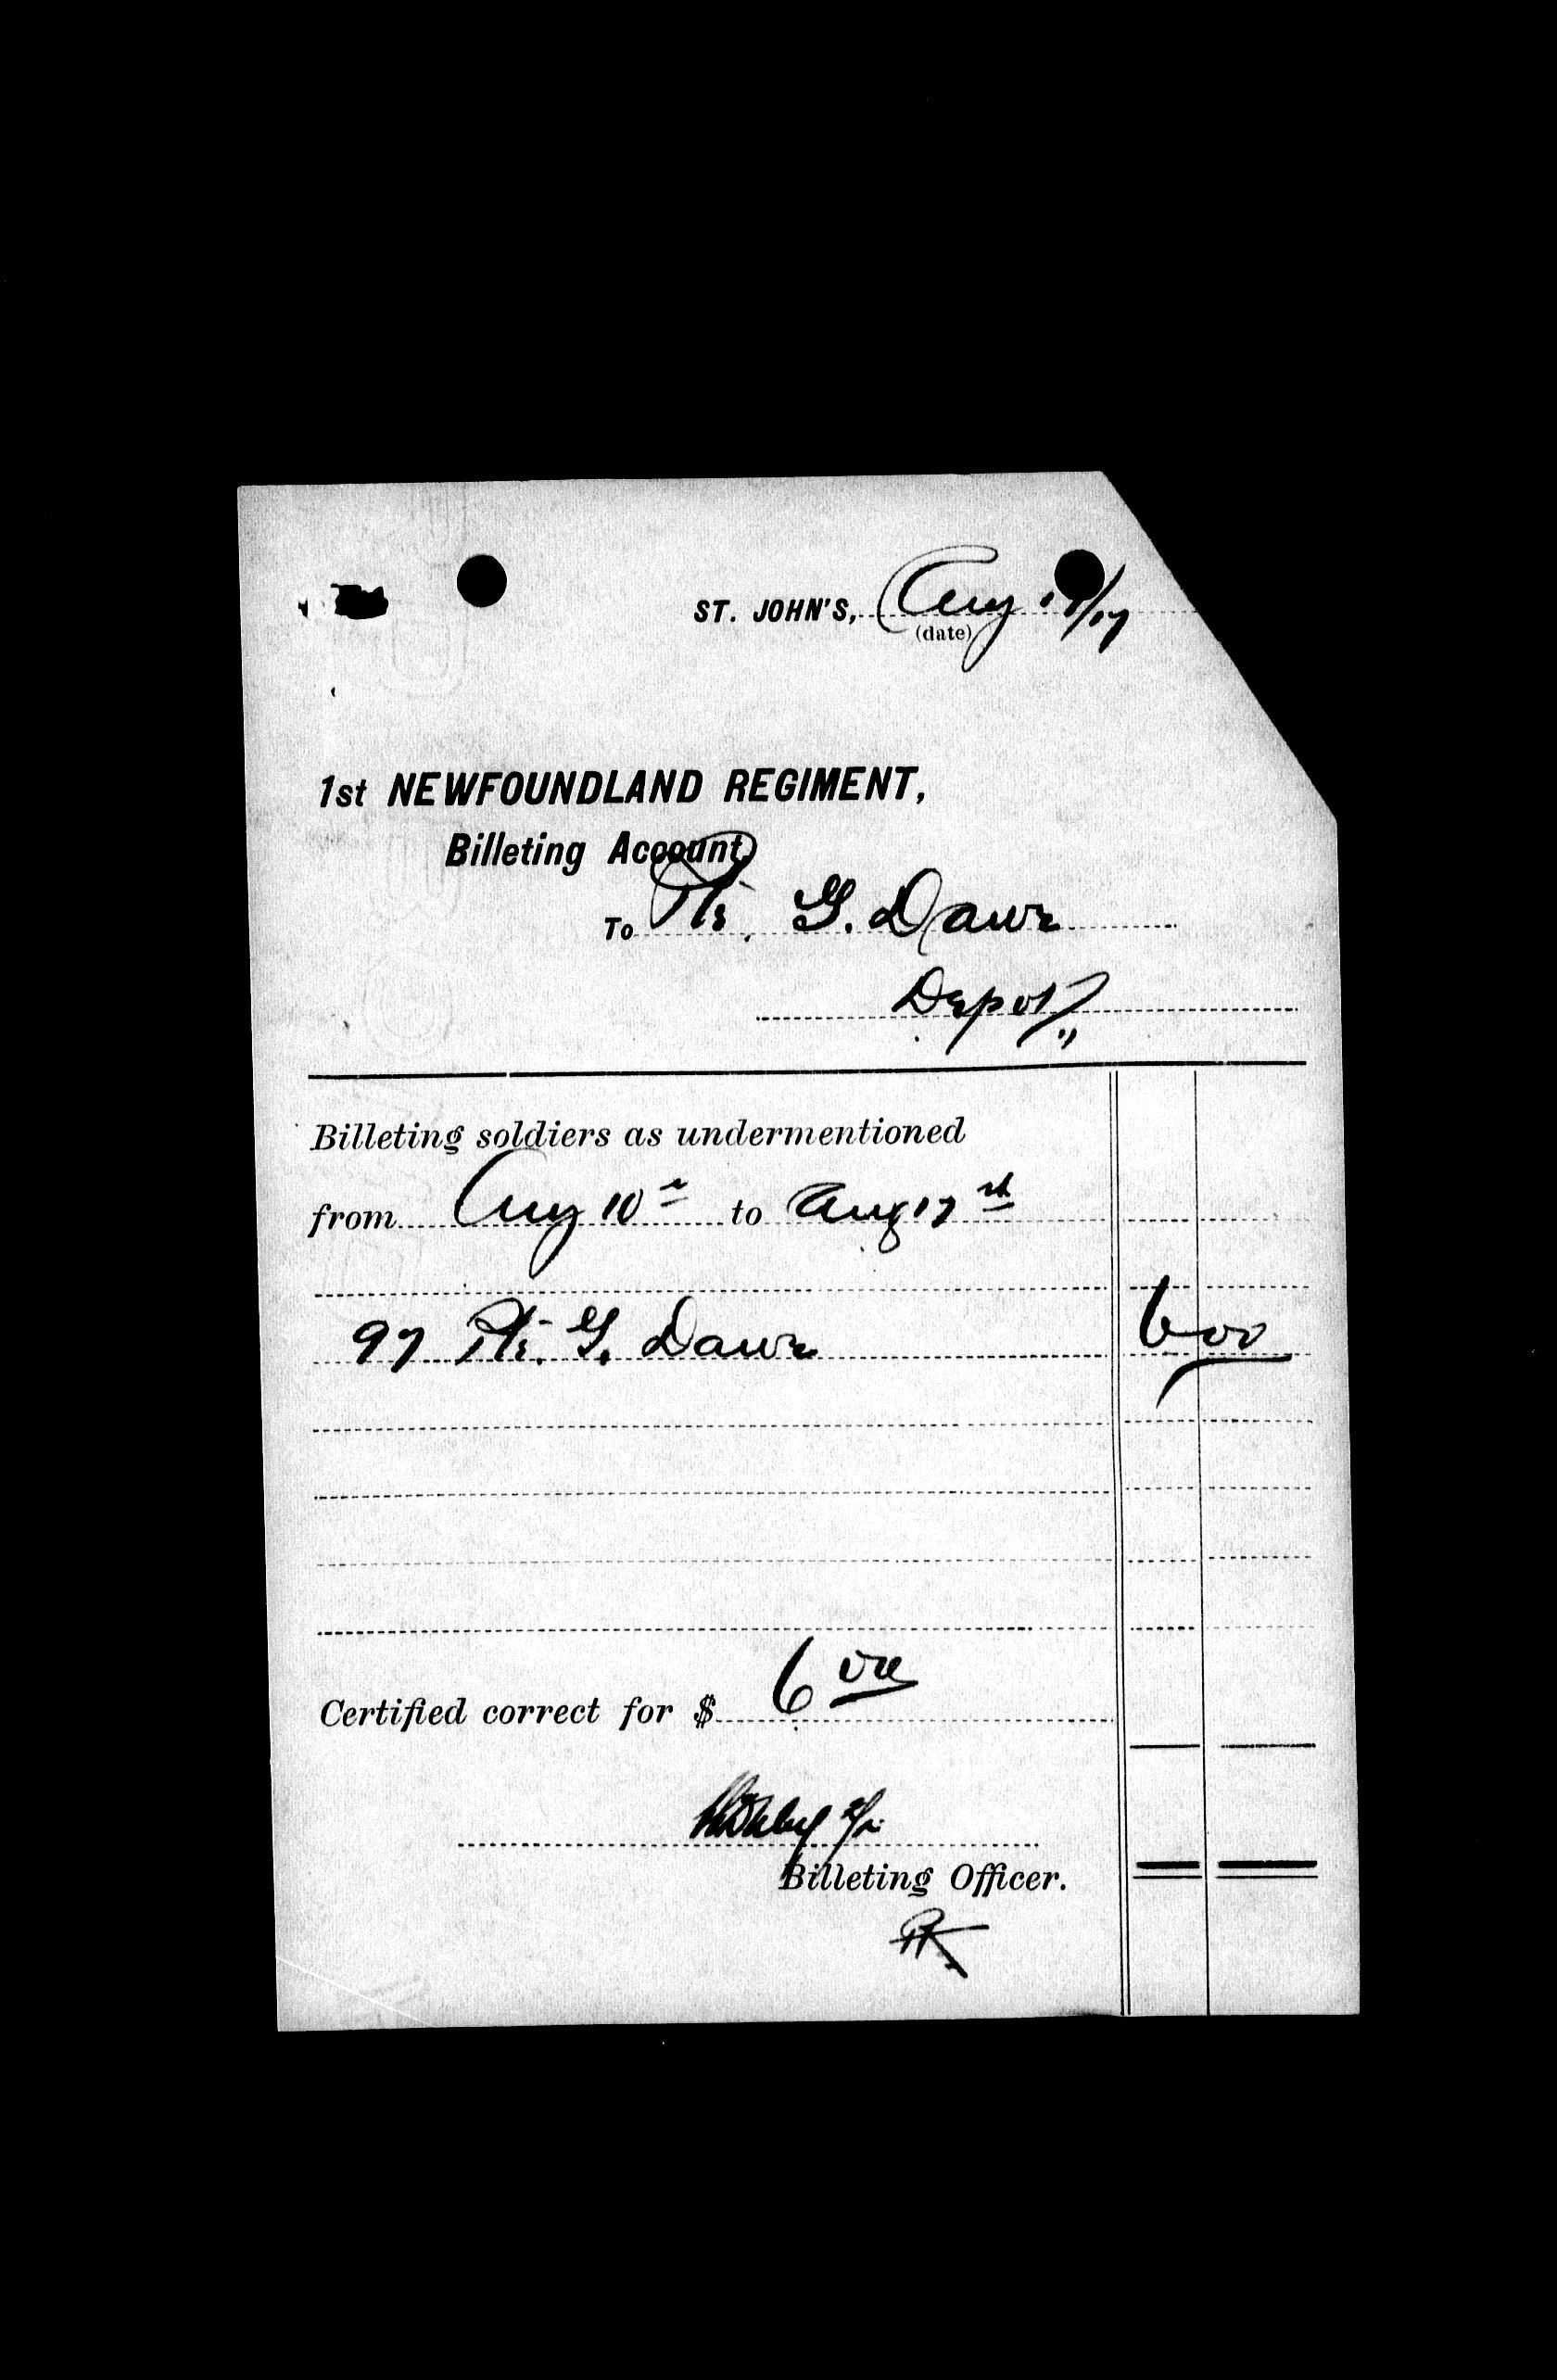 ST. JOHN'S, Aug 17/17
(date)
1st NEWFOUNDLAND REGIMENT,
Billeting Account,
To Pte. G. Dawe
Depot
Billeting soldiers as undermentioned
from Aug 10th to Aug 17th
97 Pte. G. Dawe 6 00
Certified correct for $ 6 00
Billeting Officer.